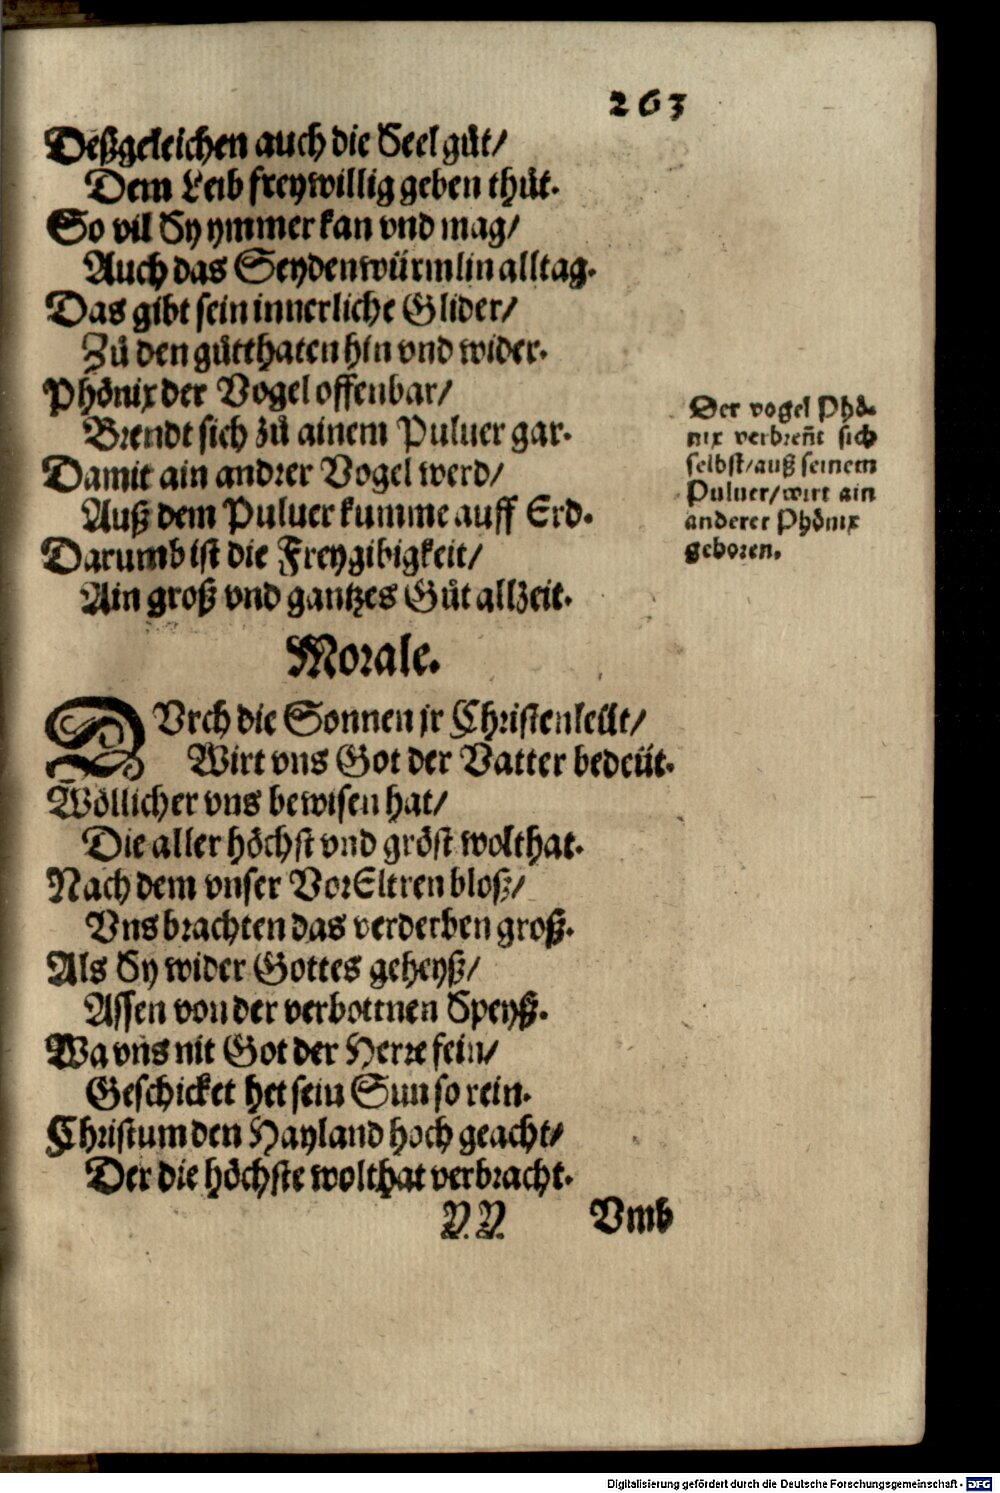 263
Deßgeleichen auch die Seel gůt/
Dem Leib freywillig geben thůt.
So vil Sy ymmer kan vnd mag/
Auch das Seydenwürmlin alltag.
Das gibt sein innerliche Glider/
Zů den gůtthaten hin vnd wider.
Phönix der Vogel offenbar/
Brendt sich zů ainem Puluer gar.
Damit ain andrer Vogel werd/
Auß dem Puluer kumme auff Erd.
Darumb ist die Freygibigkeit/
Ain groß vnd gantzes Gůt allzeit.
Der vogel Phö-
nix verbreñt sich
selbst/auß seinem
Puluer/wirt ain
anderer Phönix
geboren.
Morale.
DVrch die Sonnen jr Christenleüt/
Wirt vns Got der Vatter bedeüt.
Wöllicher vns bewisen hat/
Die aller höchst vnd gröst wolthat.
Nach dem vnser VorEltren bloß/
Vns brachten das verderben groß.
Als Sy wider Gottes geheyß/
Assen von der verbottnen Speyß.
Wa vns nit Got der Herre fein/
Geschicket het sein Sun so rein.
Christum den Hayland hoch geacht/
Der die höchste wolthat verbracht.
N.N. Vmb
Digitalisierung gefördert durch die Deutsche Forschungsgemeinschaft - DFG